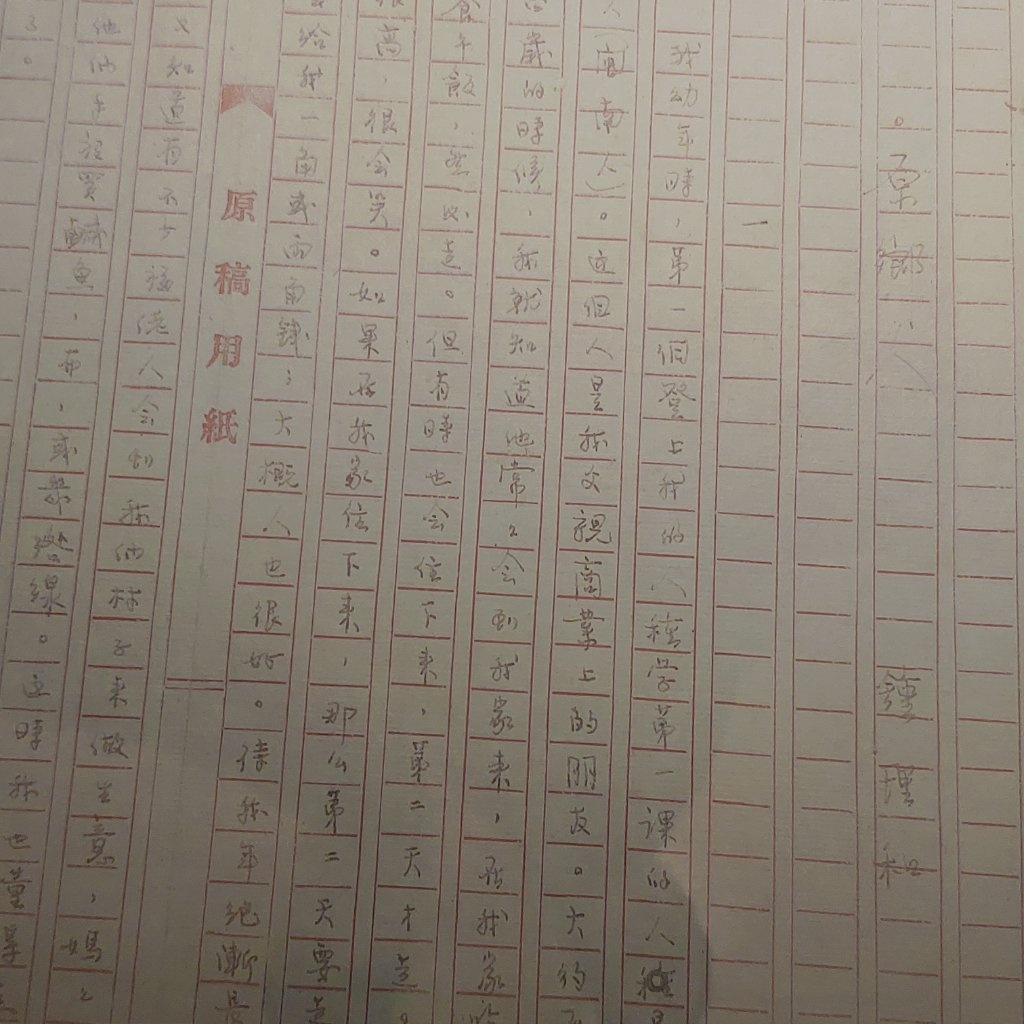 。原鄉人 鍾理和
一
我幼年時，第一個登上我的人種学第一課的人種是
人（閩南人）。這個人是我父親商業上的朋友。大約
歲的時候，我就知道他常々会到我家来，在我家吃
食午飯，然後走。但有時也会住下来，第二天才走。
很高，很会笑。如果在我家住下来，那么第二天要走
給我一角或兩角錢；大概人也很好。待我年紀漸長
原稿用紙
又知道有不少福佬人会到我们村子来做生意，媽々
他们手裡買鹹魚，布，或線。這時我也懂
了。